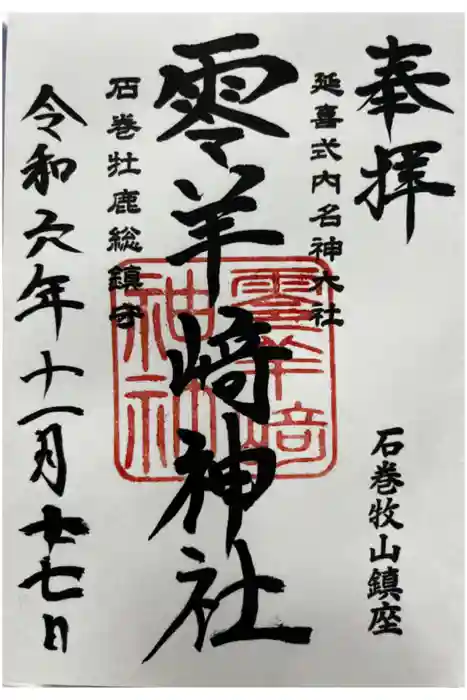 奉拝
石巻牧山鎮座
延喜式内名神大社
零羊﨑神社
零羊﨑
神社
石巻牡鹿総鎮守
令和六年十一月廿七日